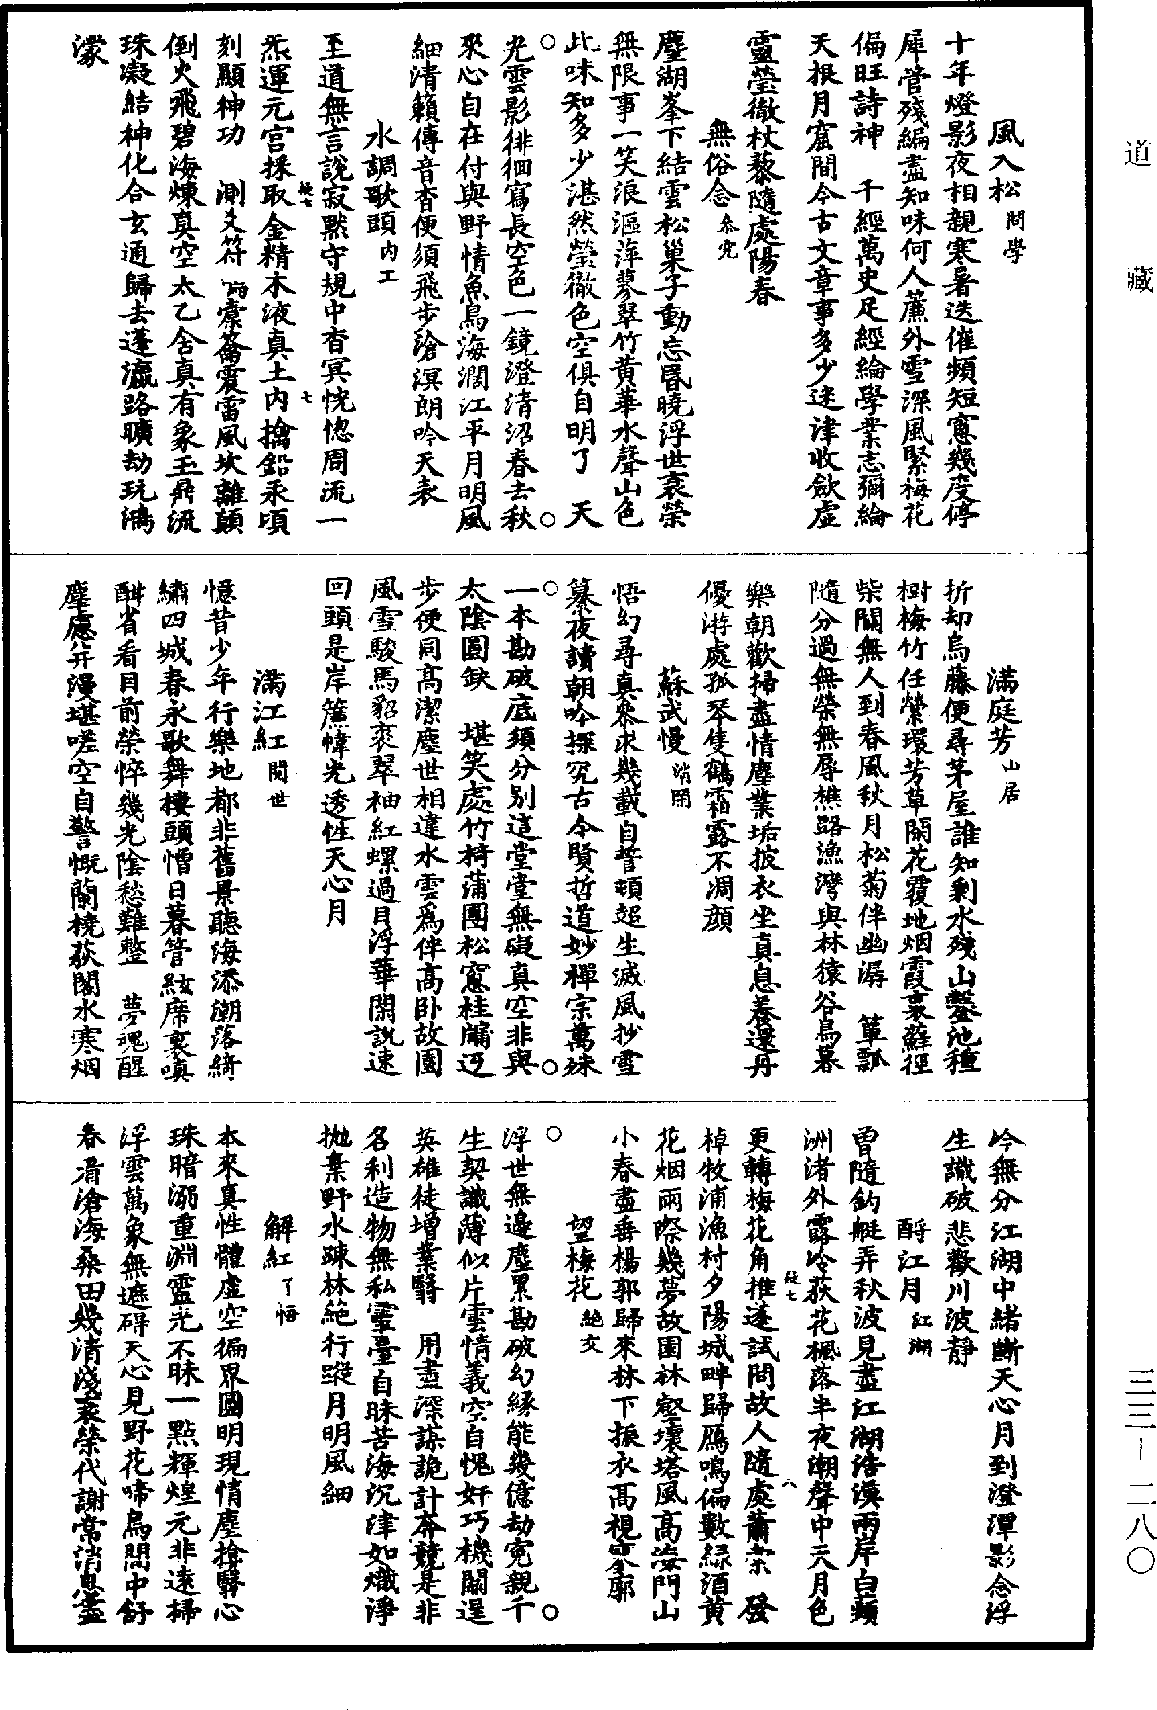 道
藏
三三－二八〇
風入松問學
十年燈影夜相親寒暑迭催頻短窻幾度停
犀管殘編盡知味何人簾外雪深風緊梅花
偏旺詩神　千經萬史足經綸學業志彌綸
天根月窟間今古文章事多少迷津收歛虛
靈瑩徹杖藜隨處陽春
無俗念
塵湖峯下結雲松巢子動忘昏曉浮世衰榮
無限事一笑浪漚萍蓼翠竹黃華水聲山色
此味知多少湛然瑩徹色空俱自明了　天
光雲影徘徊寫長空色一鏡澄清沼春去秋
來心自在付與野情魚鳥海濶江平月明風
細清籟傳音杳便須飛步滄溟朗吟天表
水調歌頭內工
至道無言說寂默守規中杳冥恍惚周流一
炁運元宮採取金精木液真土內擒鉛汞頃
刻顯神功　測爻符　橐籥震雷風坎離顛
倒火飛碧海煉真空太乙含真有象玉鼎流
珠凝結神化合玄通歸去蓬瀛路曠劫玩鴻
濛
滿庭芳山居
折却烏藤便尋茅屋誰知剩水殘山鑿池種
樹梅竹任縈環芳草閑花覆地烟霞裏蘚徑
柴關無人到春風秋月松菊伴幽潺　簞瓢
隨分過無榮無辱樵路漁灣與林猿谷鳥暮
樂朝歡掃盡情塵業垢披衣坐真息養還丹
優游處孤琴隻鶴霜露不凋顔
蘇武慢
悟幻尋真叅求幾載自誓頓超生滅風抄雪
纂夜讀朝吟探究古今賢哲道妙禪宗萬殊
一本勘破底須分別這堂堂無礙真空非與
太陰圓缺　堪笑處竹椅蒲團松窻桂牖迂
步便同高潔塵世相違水雲爲伴高卧故園
風雪駿馬貂裘翠袖紅螺過目浮華閑說速
回頭是岸簾幃光透性天心月
滿江紅閱世
憶昔少年行樂地都非舊景聽海添潮落綺
繡四城春永歌舞樓頭憎日暮管絃席裏嗔
酣省看目前榮悴幾光陰愁難整　夢魂醒
塵應弃漫堪嗟空自警慨蘭橈荻閣水寒烟
冷無分江湖中緒斷天心月到澄潭影念浮
生識破悲歡川波靜
酹江月江湖
曾隨釣艇弄秋波見盡江湖浩漠兩岸白蘋
洲渚外露冷荻花楓落半夜潮聲中天月色
更轉梅花角推蓬試問故人隨處蕭索　發
棹牧浦漁村夕陽城畔歸鴈鳴偏數綠酒黃
花烟雨際幾夢故園林壑壞塔風高海門山
小春盡垂楊郭歸來林下振衣高視寥廓
望梅花絕交
浮世無邊塵累勘破幻緣能幾億劫寃親千
生契讖薄似片雲情義空自愧奸巧機關逞
英雄徒增業翳　用盡深謀詭計奔競是非
名利造物無私靈臺自昧苦海沉津如熾淨
拋棄野水疎林絕行蹤月明風細
解紅了悟
本來真性體虛空徧界圓明現情塵揜翳心
珠暗溺重淵靈光不昧一點輝煌元非遠掃
浮雲萬象無遮碍天心見野花啼鳥閒中舒
春看滄海桑田幾清淺衰榮代謝常消息盡